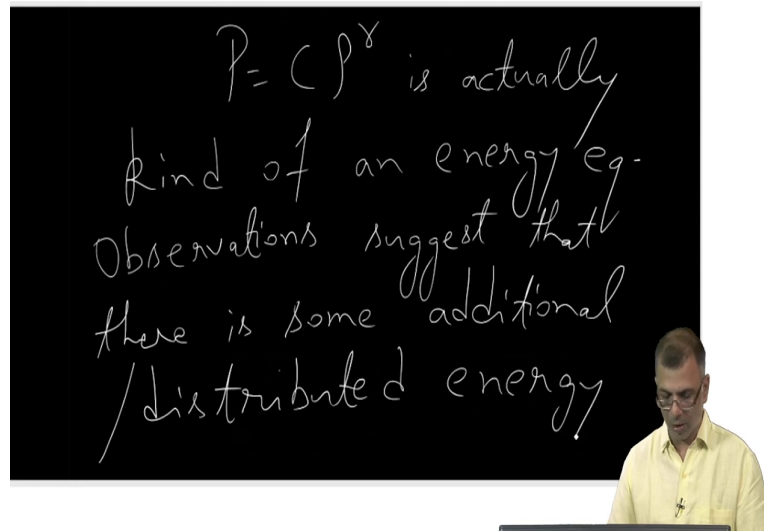 P = Cρ^γ is actually
kind of an energy eq.
Observations suggest that
there is some additional
/distributed energy